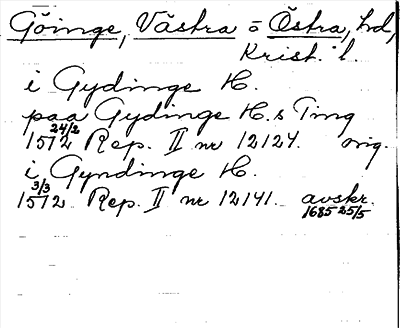 Göinge, Västra o Östra, hd,
Krist. l.
i Gydinge H.
paa Gydinge H. s Ting
1512 24/2 Rep. II nr 12124. orig.
i Gyndinge H.
1512 3/3 Rep. II nr 12141. avskr.
1685 25/5